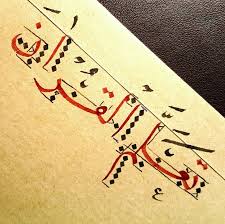 تعلم القرآن